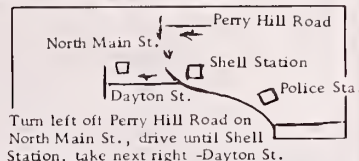 Perry Hill Road
North Main St.
Shell Station
Police Sta
Dayton St.
Turn left off Perry Hill Road on
North Main St., drive until Shell
Station, take next right -Dayton St.